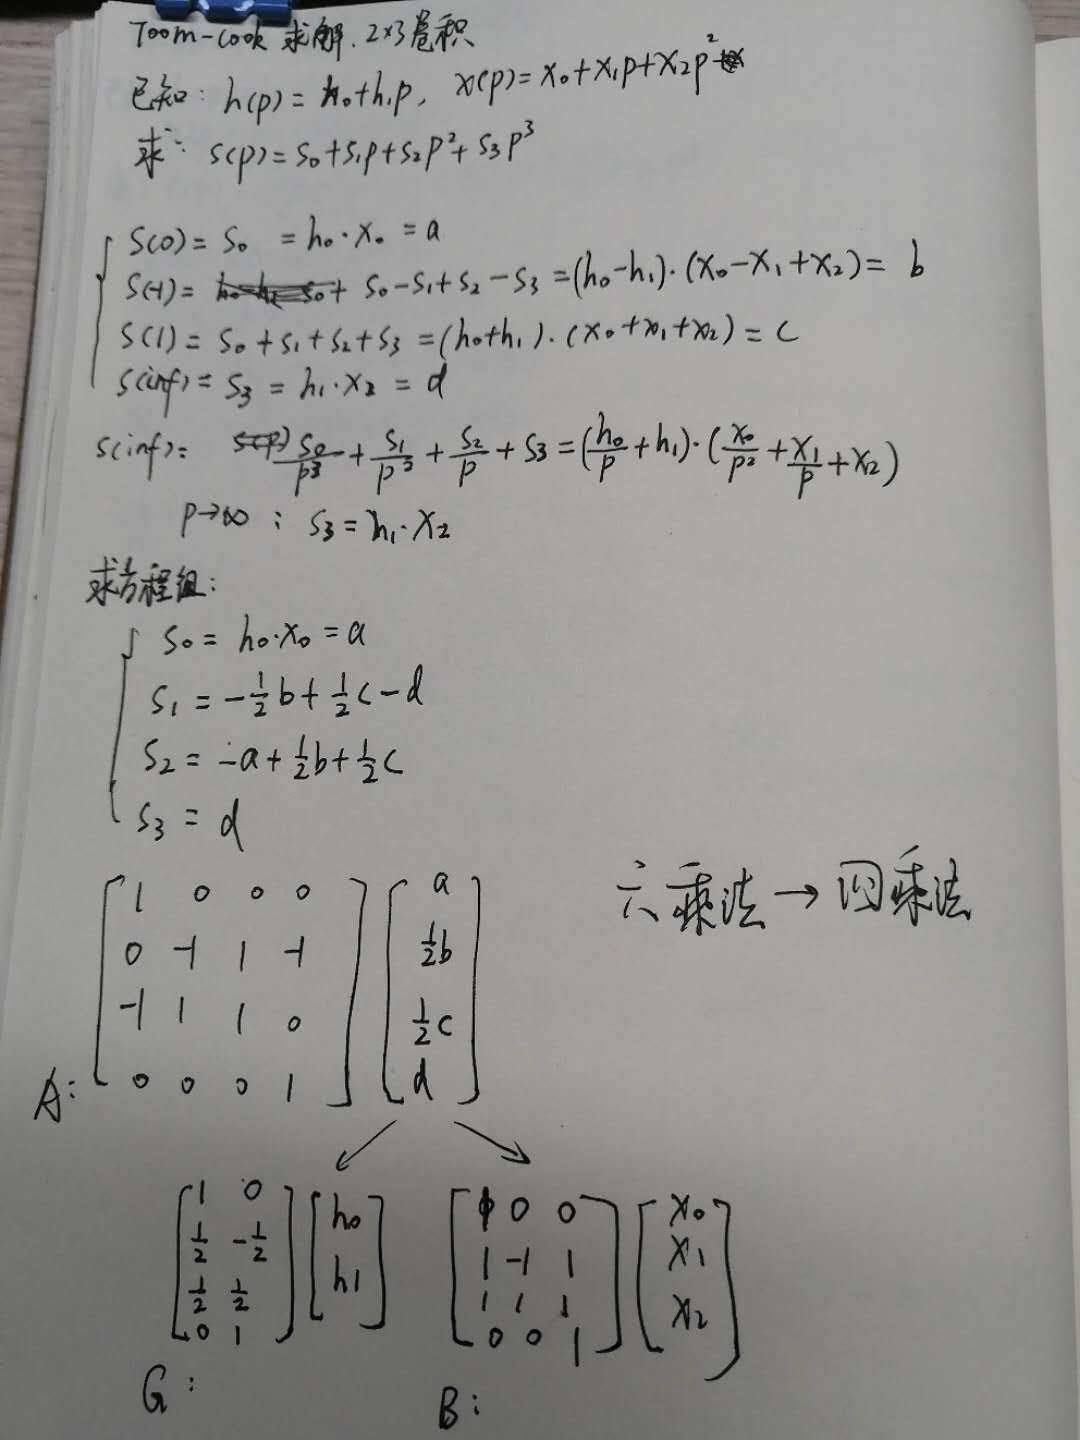 Toom-cook 求解. 2×3卷积
已知: h(p) = h₀+h₁p, x(p)= x₀+x₁p+x₂p²
求: s(p)= s₀+s₁p+s₂p²+s₃p³
S(0)= s₀ = h₀·x₀ = a
S(-1)= s₀-s₁+s₂-s₃ =(h₀-h₁)·(x₀-x₁+x₂)= b
S(1)= s₀+s₁+s₂+s₃ =(h₀+h₁)·(x₀+x₁+x₂) = c
S(inf)= s₃ = h₁·x₂ = d
s(inf)= s₀/p³ + s₁/p³ + s₂/p + s₃ =(h₀/p + h₁)·(x₀/p² + x₁/p + x₂)
p→∞ : s₃ = h₁·x₂
求方程组:
s₀ = h₀·x₀ = a
s₁ = -½b+½c-d
s₂ = -a+½b+½c
s₃ = d
六乘法→四乘法
1 0 0 0 a
0 -1 1 -1 ½b
-1 1 1 0 ½c
A: 0 0 0 1 d
1 0 h₀ 1 0 0 x₀
½ -½ h₁ 1 -1 1 x₁
½ ½ 1 1 1 x₂
0 1 0 0 1
G: B: